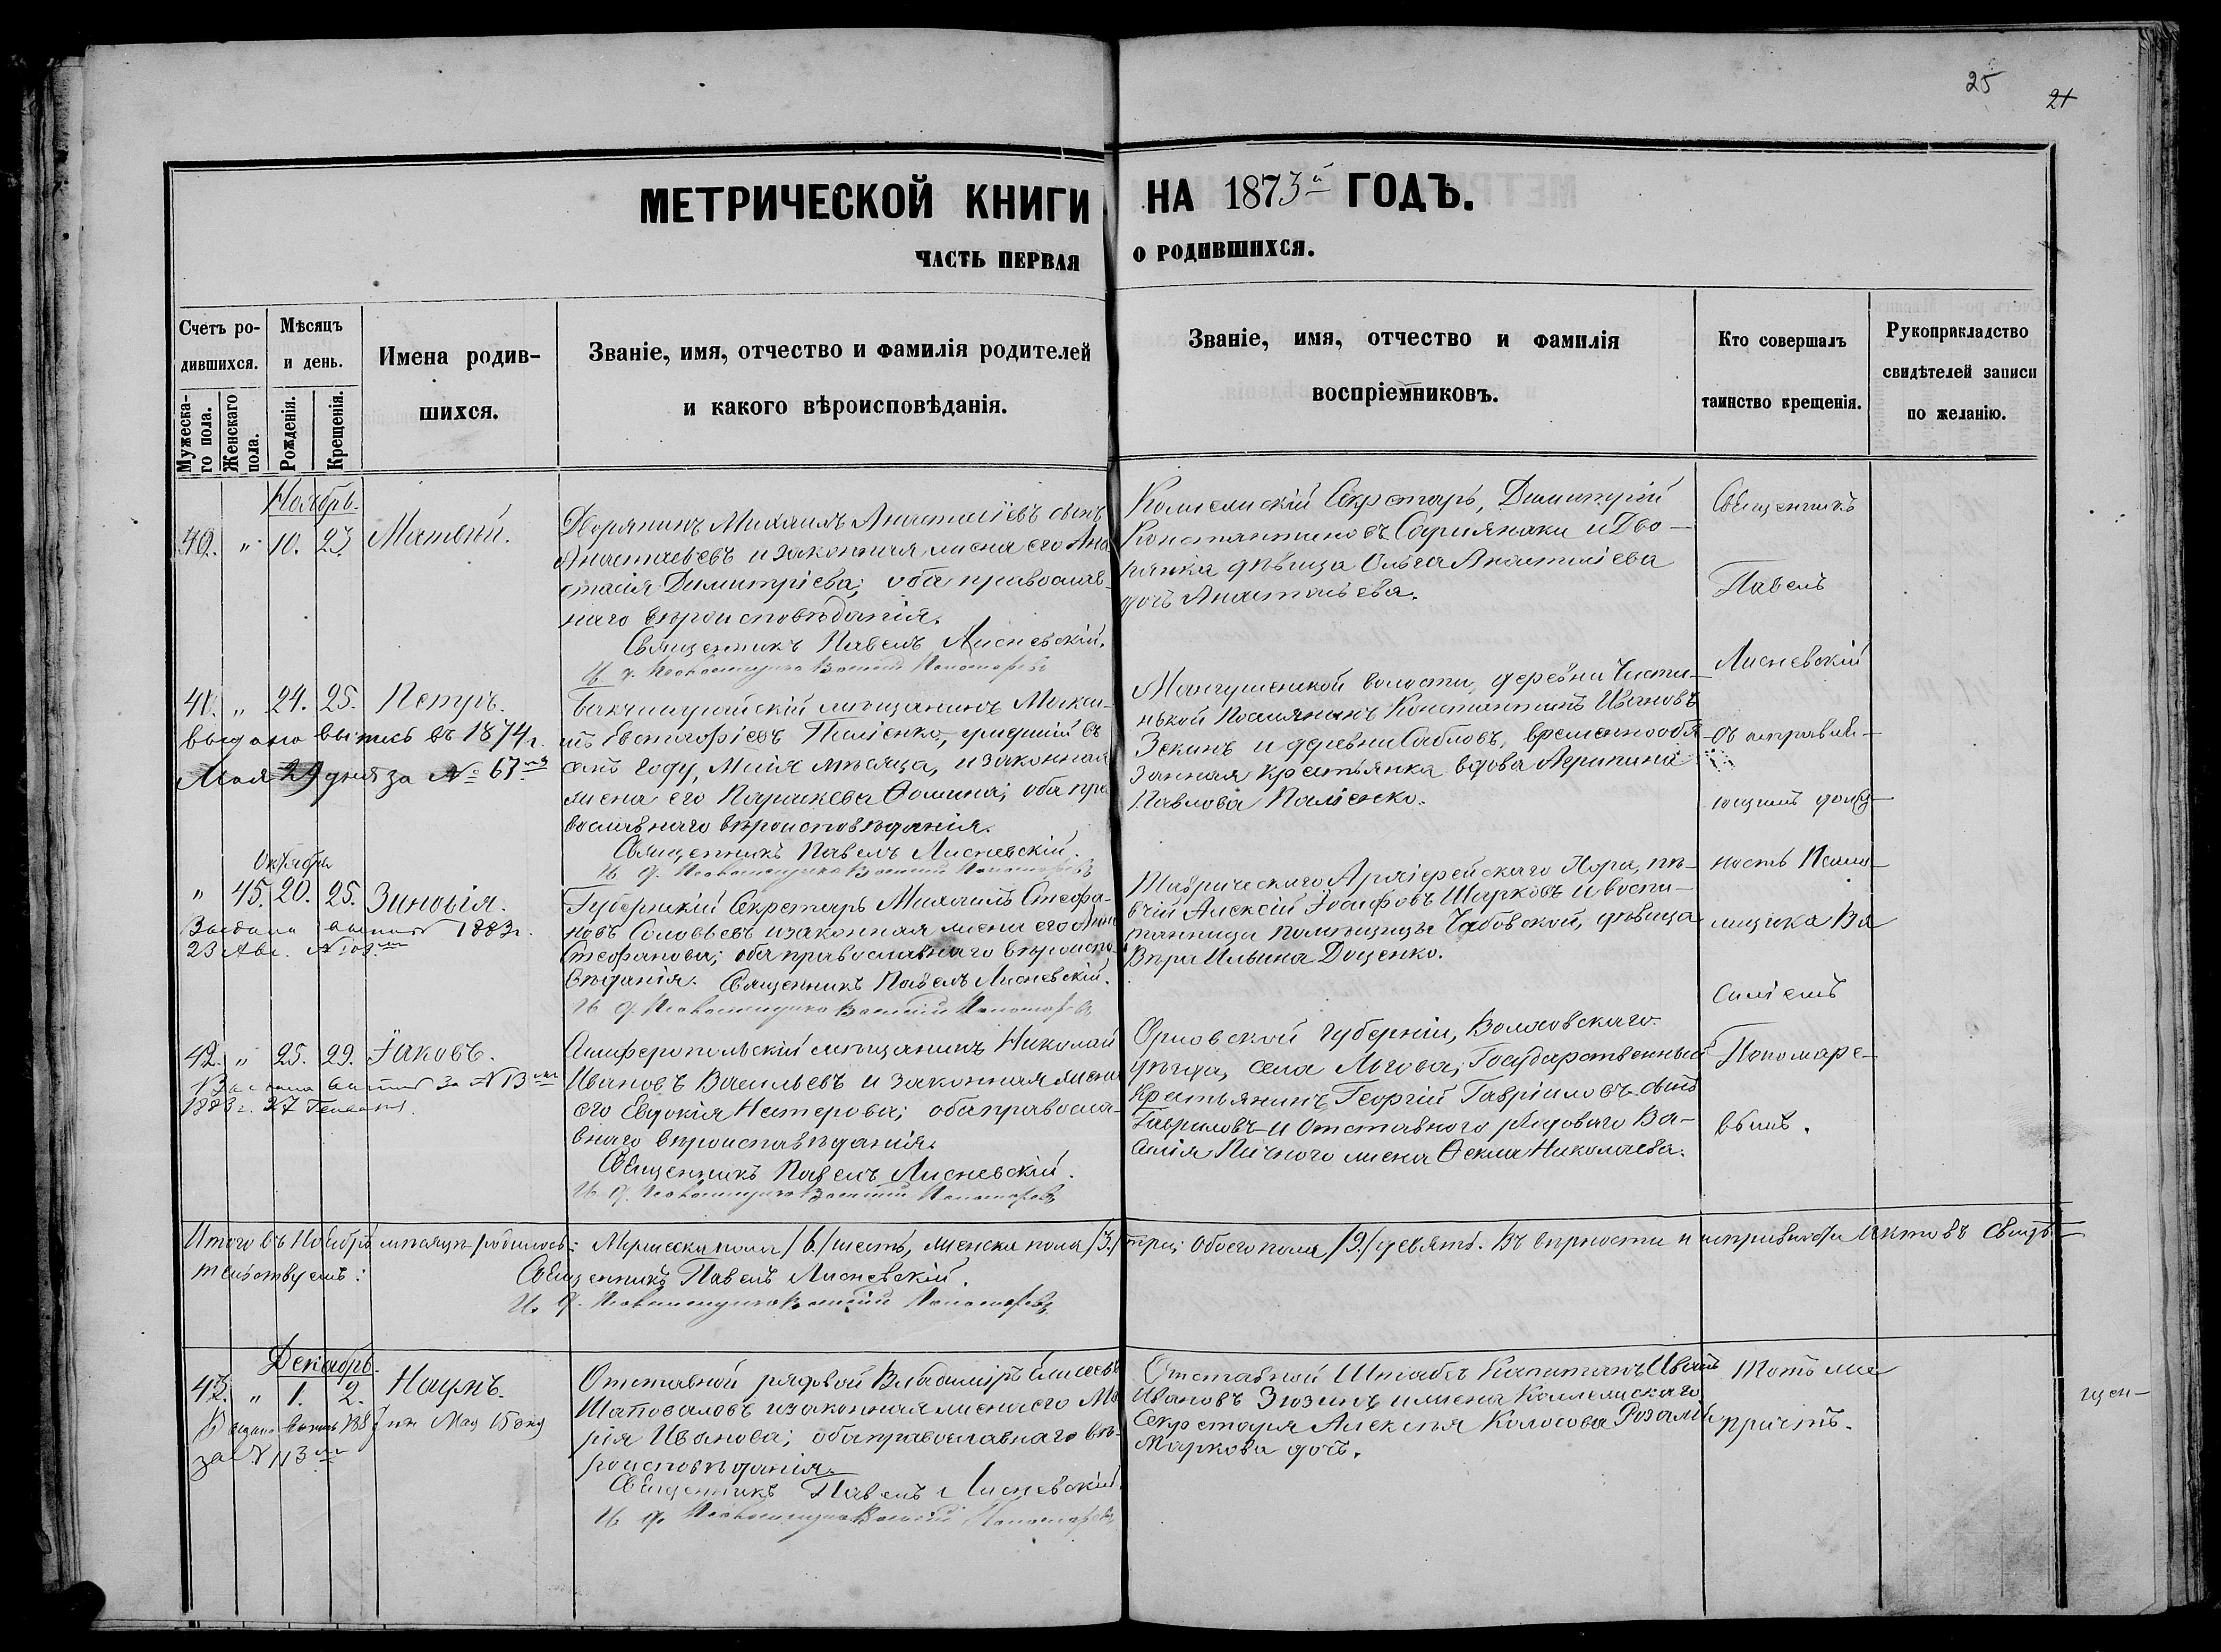 25
21
МЕТРИЧЕСКОЙ КНИГИ НА 1873й ГОДЪ.
ЧАСТЬ ПЕРВАЯ О РОДИВШИХСЯ.
Счетъ ро-
дившихся.
Мужеска-
го пола.
Женскаго
пола.
Мѣсяцъ
и день.
Рожденія.
Крещенія.
Имена родив-
шихся.
Званіе, имя, отчество и фамилія родителей
и какого вѣроисповѣданія.
Званіе, имя, отчество и фамилія
воспріемниковъ.
Кто совершалъ
таинство крещенія.
Рукоприкладство
свидѣтелей записи
по желанію.
Ноябрь.
40. " 10. 23. Матвѣй.
Дворянинъ Михаилъ Анастасіевъ сынъ
Анастасьевъ и законная жена его Ана
стасія Димитріева; оба православ-
наго вѣроисповѣданія.
Священникъ Павелъ Лисневскій.
И. д. Псаломщика Василій Пономаревъ
Коллежскій Секретарь, Димитрій
Константиновъ и Дво-
рянка дѣвица Ольга Анастасіева
дочь Анастасьева.
Священникъ
Павелъ
Лисневскій
41. " 24. 25. Петръ.
выдана выпись въ 1874 г.
Мая 29 дня за № 67
Бакчисарайскій мѣщанинъ Михаи-
лъ Палiенко, въ
семъ году, Мая мѣсяца, и законная
жена его Параскева Ѳомина; оба пра
вославнаго вѣроисповѣданія.
Священникъ Павелъ Лисневскій.
И. д. Псаломщика Василій Пономаревъ
Мангушской волости, деревни
Поселянинъ Константинъ Ивановъ
Зекинъ и деревни Сабловъ, временнообя
занная крестьянка вдова Агрипина
Павлова Паліенко.
съ исправля-
ющимъ долж-
ность Псало-
мщика Ва
силіемъ
Пономаре-
вымъ.
Октябрь
" 45. 20. 25. Зиновія.
Выдана выпись 1883 г.
23 Авг. №
Губернскій Секретарь Михаилъ Стефа-
новъ Соловьевъ и законная жена его Анна
Стефанова; оба православнаго вѣроиспо-
вѣданія. Священникъ Павелъ Лисневскій.
И. д. Псаломщика Василій Пономаревъ
Таврическаго Архіерейскаго Хора, пѣ-
вчій Алексій Іосифовъ Шарковъ и воспи-
танница помѣщицы Чабовской, дѣвица
Вѣра Ильина Доценко.
42. " 25. 29. Іаковъ.
Выдана выпись за № 13
27 Генваря.
Симферопольскій мѣщанинъ Николай
Ивановъ Васильевъ и законная жена
его Евдокія Нестерова; оба правосла-
внаго вѣроисповѣданія.
Священникъ Павелъ Лисневскій.
И. д. Псаломщика Василій Пономаревъ
Орловской губерніи, Болховскаго
уѣзда, села Льгова, Государственный
крестьянинъ Георгій Гавріиловъ сынъ
Гавриловъ и Отставного рядоваго Ва-
силія жена Ѳекла Николаева.
Итого въ Ноябрѣ мѣсяцѣ родилось: Мужеска пола /6./ шесть, женска пола /3./ три; Обоего пола /9./ девять. Въ вѣрности и исправности Актовъ свидѣ-
тельствуемъ:
Священникъ Павелъ Лисневскій.
И. д. Псаломщика Василій Пономаревъ
Декабрь.
43. " 1. 2. Наумъ.
Выдана выпись Мая 15 дня
за № 113
Отставной рядовой Владиміръ Елисеевъ
Шаповаловъ и законная жена его Ма
рія Иванова; оба православнаго вѣ-
роисповѣданія.
Священникъ Павелъ Лисневскій.
И. д. Псаломщика Василій Пономаревъ
Отставной Штабсъ Капитанъ Иванъ
Ивановъ Зюзинъ и жена Коллежскаго
Секретаря Алексѣя Колосова Розалія
Маркова дочь.
Тотъ же
причтъ.
щен-